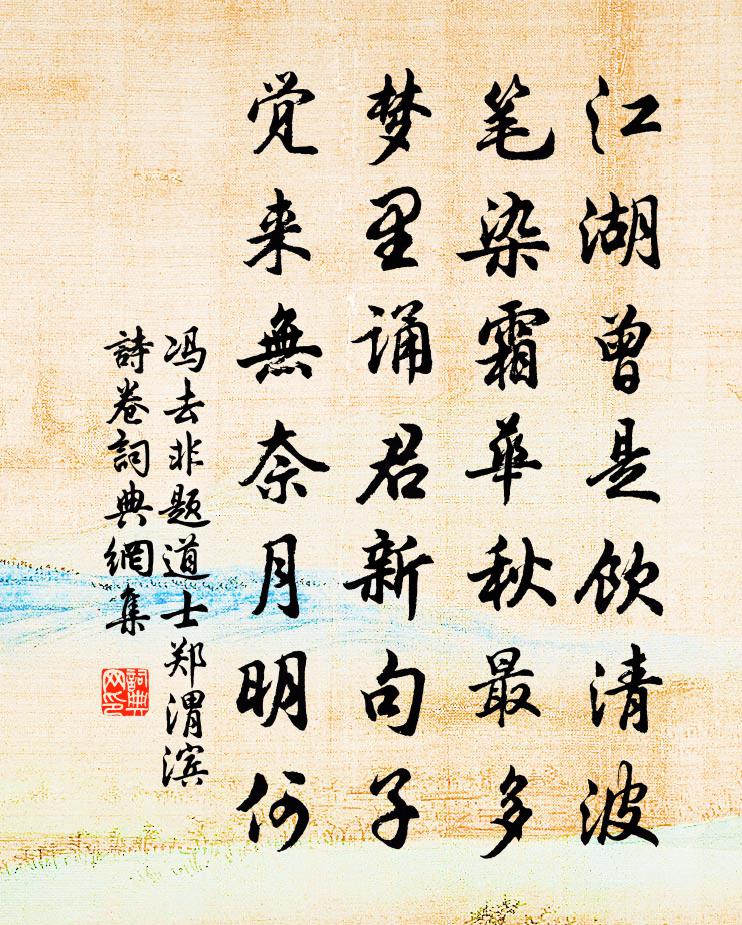 江湖曾是饮清波
笔染霜华秋最多
梦里诵君新句子
觉来無奈月明何
冯去非题道士郑渭滨
詩卷詞典網集
詞典网印